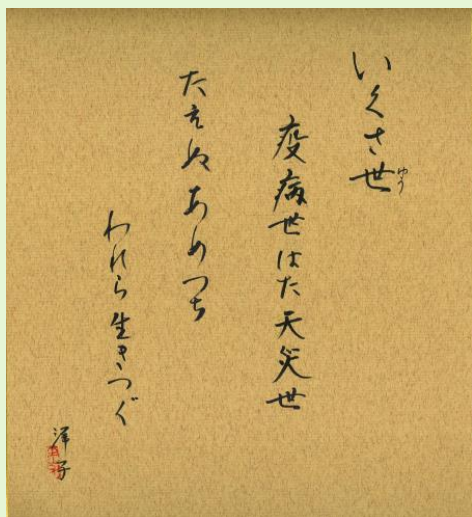 いくさ世
ゆう
疫病世はた天災世
たえぬあめつち
われら生きつぐ
洋子